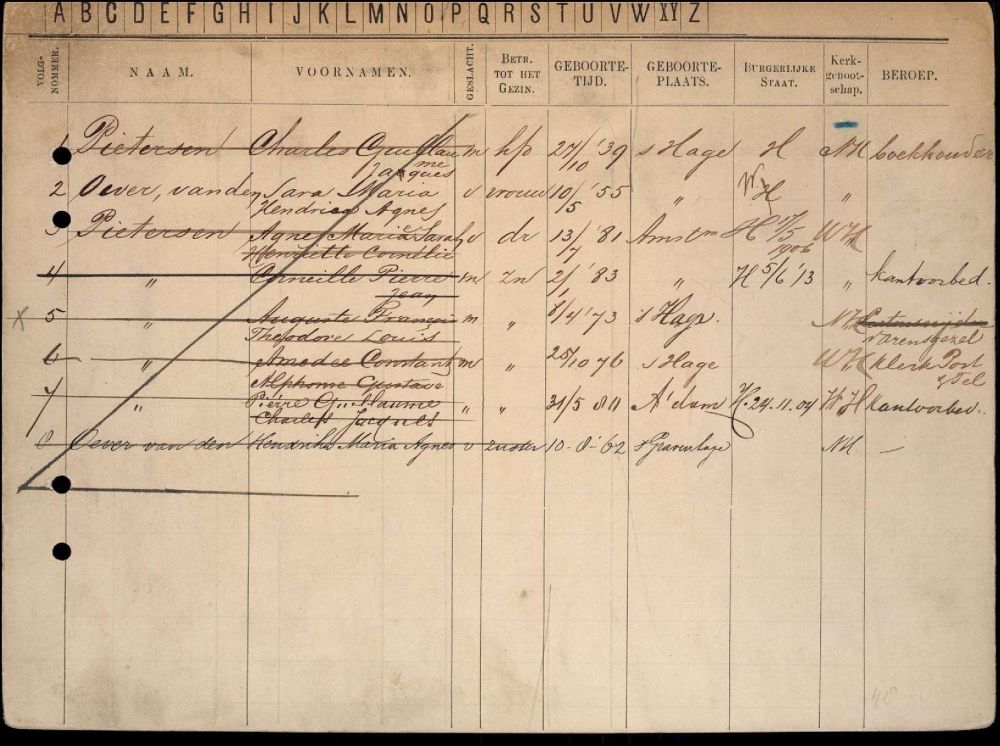 A B C D E F G H I J K L M N O P Q R S T U V W XY Z
VOLG-NOMMER. NAAM. VOORNAMEN. GESLACHT. BETR. TOT HET GEZIN. GEBOORTE-TIJD. GEBOORTE-PLAATS. BURGERLIJKE STAAT. Kerk-genoot-schap. BEROEP.
1 Pietersen Charles Guillau m h/p 27/10 '39 s Hage H NH boekhouder
me
Jacques
2 Oever, van den Sara Maria v vrouw 10/5 '55 " W. H "
Hendrica Agnes
3 Pietersen Agnes Maria Sarah v dr 13/7 '81 Amstm H 17/5 1906 WH
Henriette Cornélie
4 " Corneille Pierre m zn 2/1 '83 " H 5/6 '13 " kantoorbed.
Jean
5 " Auguste François m " 8/4 '73 s Hage NH
Theodore Louis varensgezel
6 " Amedee Constant m " 25/10 76 s Hage WH klerk Post
Alphonse Gustave & Tel
7 " Pierre Guillaume " " 31/5 811 A'dam H. 24.11.04 WH kantoorbed.
Charles Jacques
8 Oever van den Hendrika Maria Agnes v zuster 10-8-'62 s Gravenhage NH. —
48